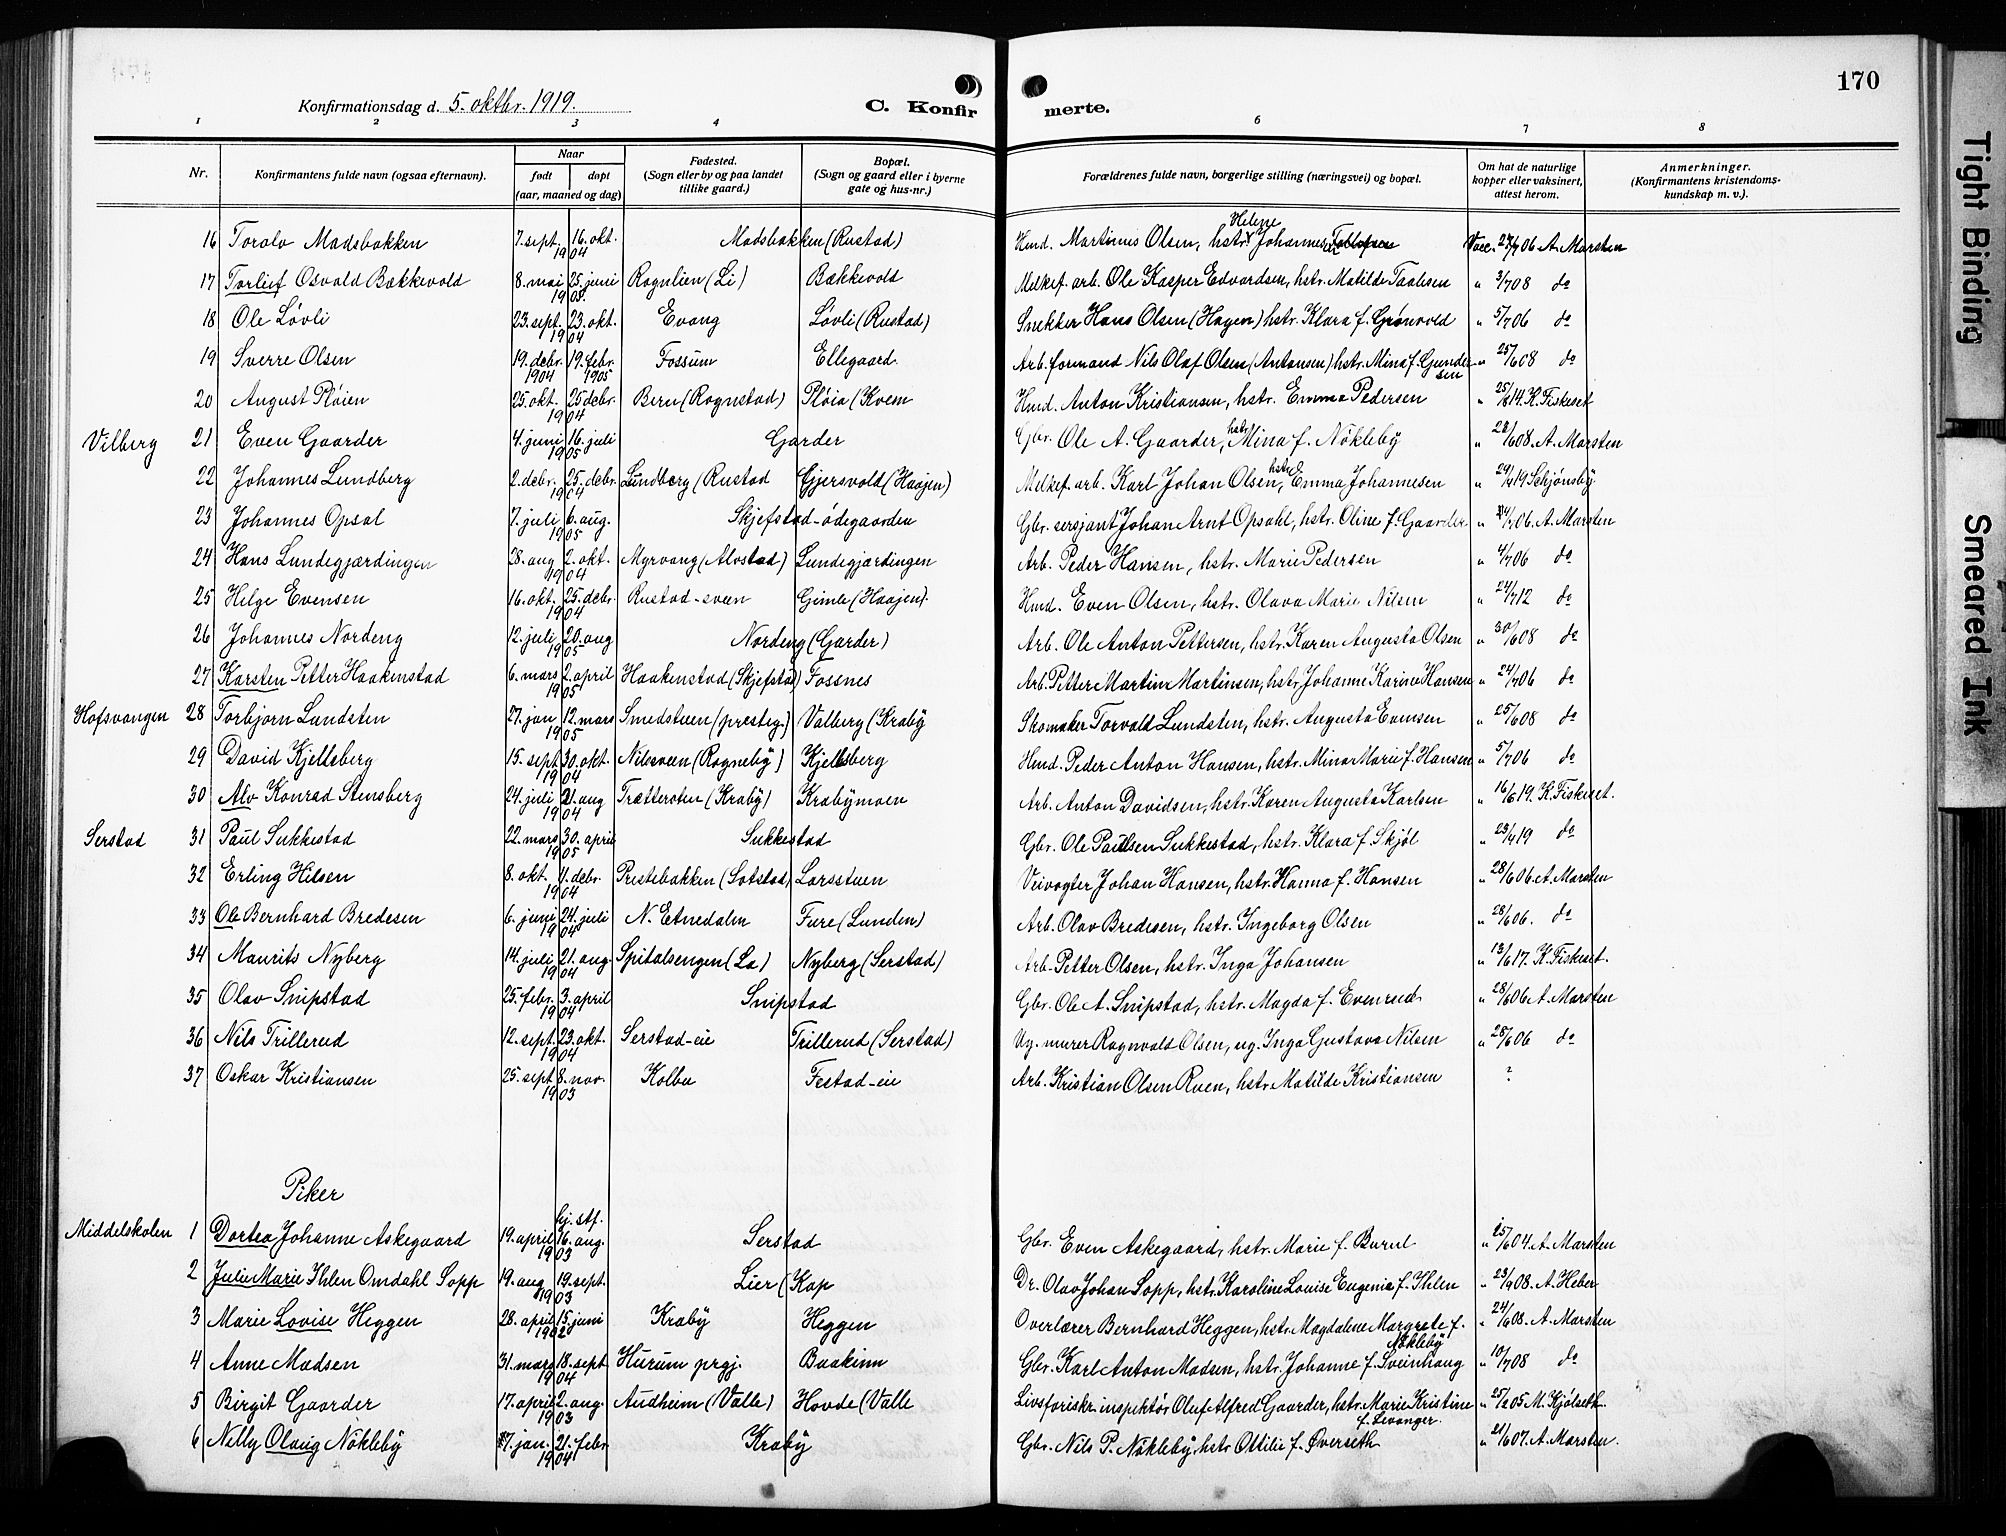 170
Konfirmationsdag d. 5. oktbr. 1919.
C. Konfirmerte.
1 2 3 4 6 7 8
Nr. | Konfirmantens fulde navn (ogsaa efternavn). | Naar født døpt (aar, maaned og dag) | Fødested. (Sogn eller by og paa landet tillike gaard.) | Bopæl. (Sogn og gaard eller i byerne gate og hus-nr.) | Forældrenes fulde navn, borgerlige stilling (næringsvei) og bopæl. | Om hat de naturlige kopper eller vaksinert, attest herom. | Anmerkninger. (Konfirmantens kristendoms-kundskap m. v.).
16 Toralv Madsbakken 7. sept. 16. okt. 1904 Madsbakken (Rustad) Hmd. Martinus Olsen, hstr. Helene Johannes Vacc. 27/7 06 A. Marsten
17 Torleif Osvald Bækkevold 8. mai 25. juni 1905 Rognlien (Li) Bækkevold Melkef. arb. Ole Kasper Edvardsen, hstr. Matilde Paulsen " 3/7 08 do
18 Ole Løvli 23. sept. 23. okt. 1904 Evang Løvli (Rustad) Snekker Hans Olsen (Hagen) hstr. Klara f. Grønvold " 5/7 06 do
19 Sverre Olsen 19. debr. 1904 19. febr. 1905 Fossum Ellegaard. Arb. formand Nils Olaf Olsen (Antonsen) hstr. Mina f. Gundersen " 25/6 08 do
20 August Pløien 25. okt. 25 debr. 1904 Bern (Rognstad) Pløia (Kvem Hmd. Anton Kristiansen, hstr. Emma Pedersen " 25/6 14. K. Fiskeset
Vilberg 21 Even Gaarder 4. juni 16. juli 1905 Garder Gbr. Ole A. Gaarder, hstr. Mina f. Nøkleby " 28/6 08. A. Marsten
22 Johannes Lundberg 2. debr. 25. debr. 1904 Lundberg (Rustad Gjersvold (Haajen) Melkef. arb. Karl Johan Olsen, hstr. Emma Johannesen " 24/4 19 Schjønsby
23 Johannes Opsal 7. juli 6. aug. 1905 Skjefstad-ødegaarden Gbr. sersjant Johan Arnt Opsahl, hstr. Oline f. Gaarder " 24/7 06. A. Marsten
24 Hans Lundegjærdingen 28. aug 2. okt. 1904 Myrvang (Alvstad) Lundegjærdingen Arb. Peder Hansen, hstr. Marie Pedersen " 4/7 06 do
25 Helge Evensen 16. okt. 25. debr. 1904 Rustad-sveen Gimle (Haajen). Hmd. Even Olsen, hstr. Olava Marie Nilsen " 24/7 12 do
26 Johannes Nordeng 12. juli 20. aug 1905 Nordeng (Garder) Arb. Ole Anton Pettersen, hstr. Karen Augusta Olsen " 30/6 08 do
27 Karsten Petter Haakenstad 6. mars 2. april 1905 Haakenstad (Skjefstad) Fossnes Arb. Petter Martin Martinsen, hstr. Johanne Karine Hansen " 24/7 06 do
Hofsvangen 28 Torbjørn Lundsten 27. jan 12. mars 1905 Smedstuen (presteg.) Valberg (Kraby Skomaker Torvald Lundsten, hstr. Augusta Evensen " 25/6 08 do
29 David Kjeltsberg 15. sept. 30. okt. 1904 Nilssveen (Rogneby) Kjeltsberg Hmd. Peder Anton Hansen, hstr. Mina Marie f. Hansen " 5/7 06 do
30 Alv Konrad Stensberg 24. juli 21. aug 1904 Trætteroten (Kraby) Krabymoen Arb. Anton Davidsen, hstr. Karen Augusta Karlsen " 16/6 19. K. Fiskeset.
Serstad 31 Paul Sukkestad 22. mars 30. april 1905 Sukkestad Gbr. Ole Paulsen Sukkestad, hstr. Klara f. Skjøl " 23/4 19 do
32 Erling Hilsen 8. okt. 4. debr. 1904 Prestebakken (Sotstad) Larsstuen Veivogter Johan Hansen, hstr. Hanna f. Hansen " 28/6 06. A. Marsten
33 Ole Bernhard Bredesen 6. juni 24. juli 1904 N. Etnedalen Fure (Lunden) Arb. Olav Bredesen, hstr. Ingeborg Olsen " 28/6 06. do
34 Maurits Nyberg 14. juli 21. aug 1904 Spitalsengen (La) Nyberg (Serstad) Arb. Petter Olsen, hstr. Inga Johansen " 13/6 17. K. Fiskeset.
35 Olav Snipstad 25. febr. 3. april 1904 Snipstad Gbr. Ole A. Snipstad, hstr. Magda f. Evenrud " 28/6 06 A. Marsten
36 Nils Trillerud 12. sept. 23. okt. 1904 Serstad-eie Trillerud (Serstad) Ug. murer Ragnvald Olsen, ug. Inga Gustava Nilsen " 28/6 06 do
37 Oskar Kristiansen 25. sept 8. nov. 1903 Kolbu Festad-eie Arb. Kristian Olsen Ruen, hstr. Matilde Kristiansen ?
Piker
Middelskolen 1 Dortea Johanne Askegaard 19. april hj. stf. 16. aug. 1903 Serstad Gbr. Even Askegaard, hstr. Marie f. Burul " 25/6 04. A. Marsten
2 Julie Marie Ihlen Omdahl Sopp 19. aug 19. sept. 1903 Lier (Kap Dr. Olav Johan Sopp, hstr. Karoline Louise Eugenia f. Ihlen " 23/9 08. A. Heber
3 Marie Lovise Heggen 28. april 15. juni 1902 Kraby Heggen Overlærer Bernhard Heggen, hstr. Magdalene Margrete f. Nøkleby " 24/6 08. A. Marsten
4 Anne Madsen 31. mars 18. sept 1904 Hurum prgj. Baakinn Gbr. Karl Anton Madsen, hstr. Johanne f. Sveinhaug " 10/7 08 do
5 Birgit Gaarder 17. april 2. aug. 1903 Audheim (Valle) Hovde (Valle Livsforiskr. inspektør Oluf Alfred Gaarder, hstr. Marie Kristine f. Levanger. " 25/2 05 M. Kjølseth.
6 Nelly Olaug Nøkleby 17. jan. 21. febr 1904 Kraby Gbr. Nils P. Nøkleby, hstr Ottilie f. Øverseth " 21/6 07. A. Marsten.
Tight Binding
Smeared Ink